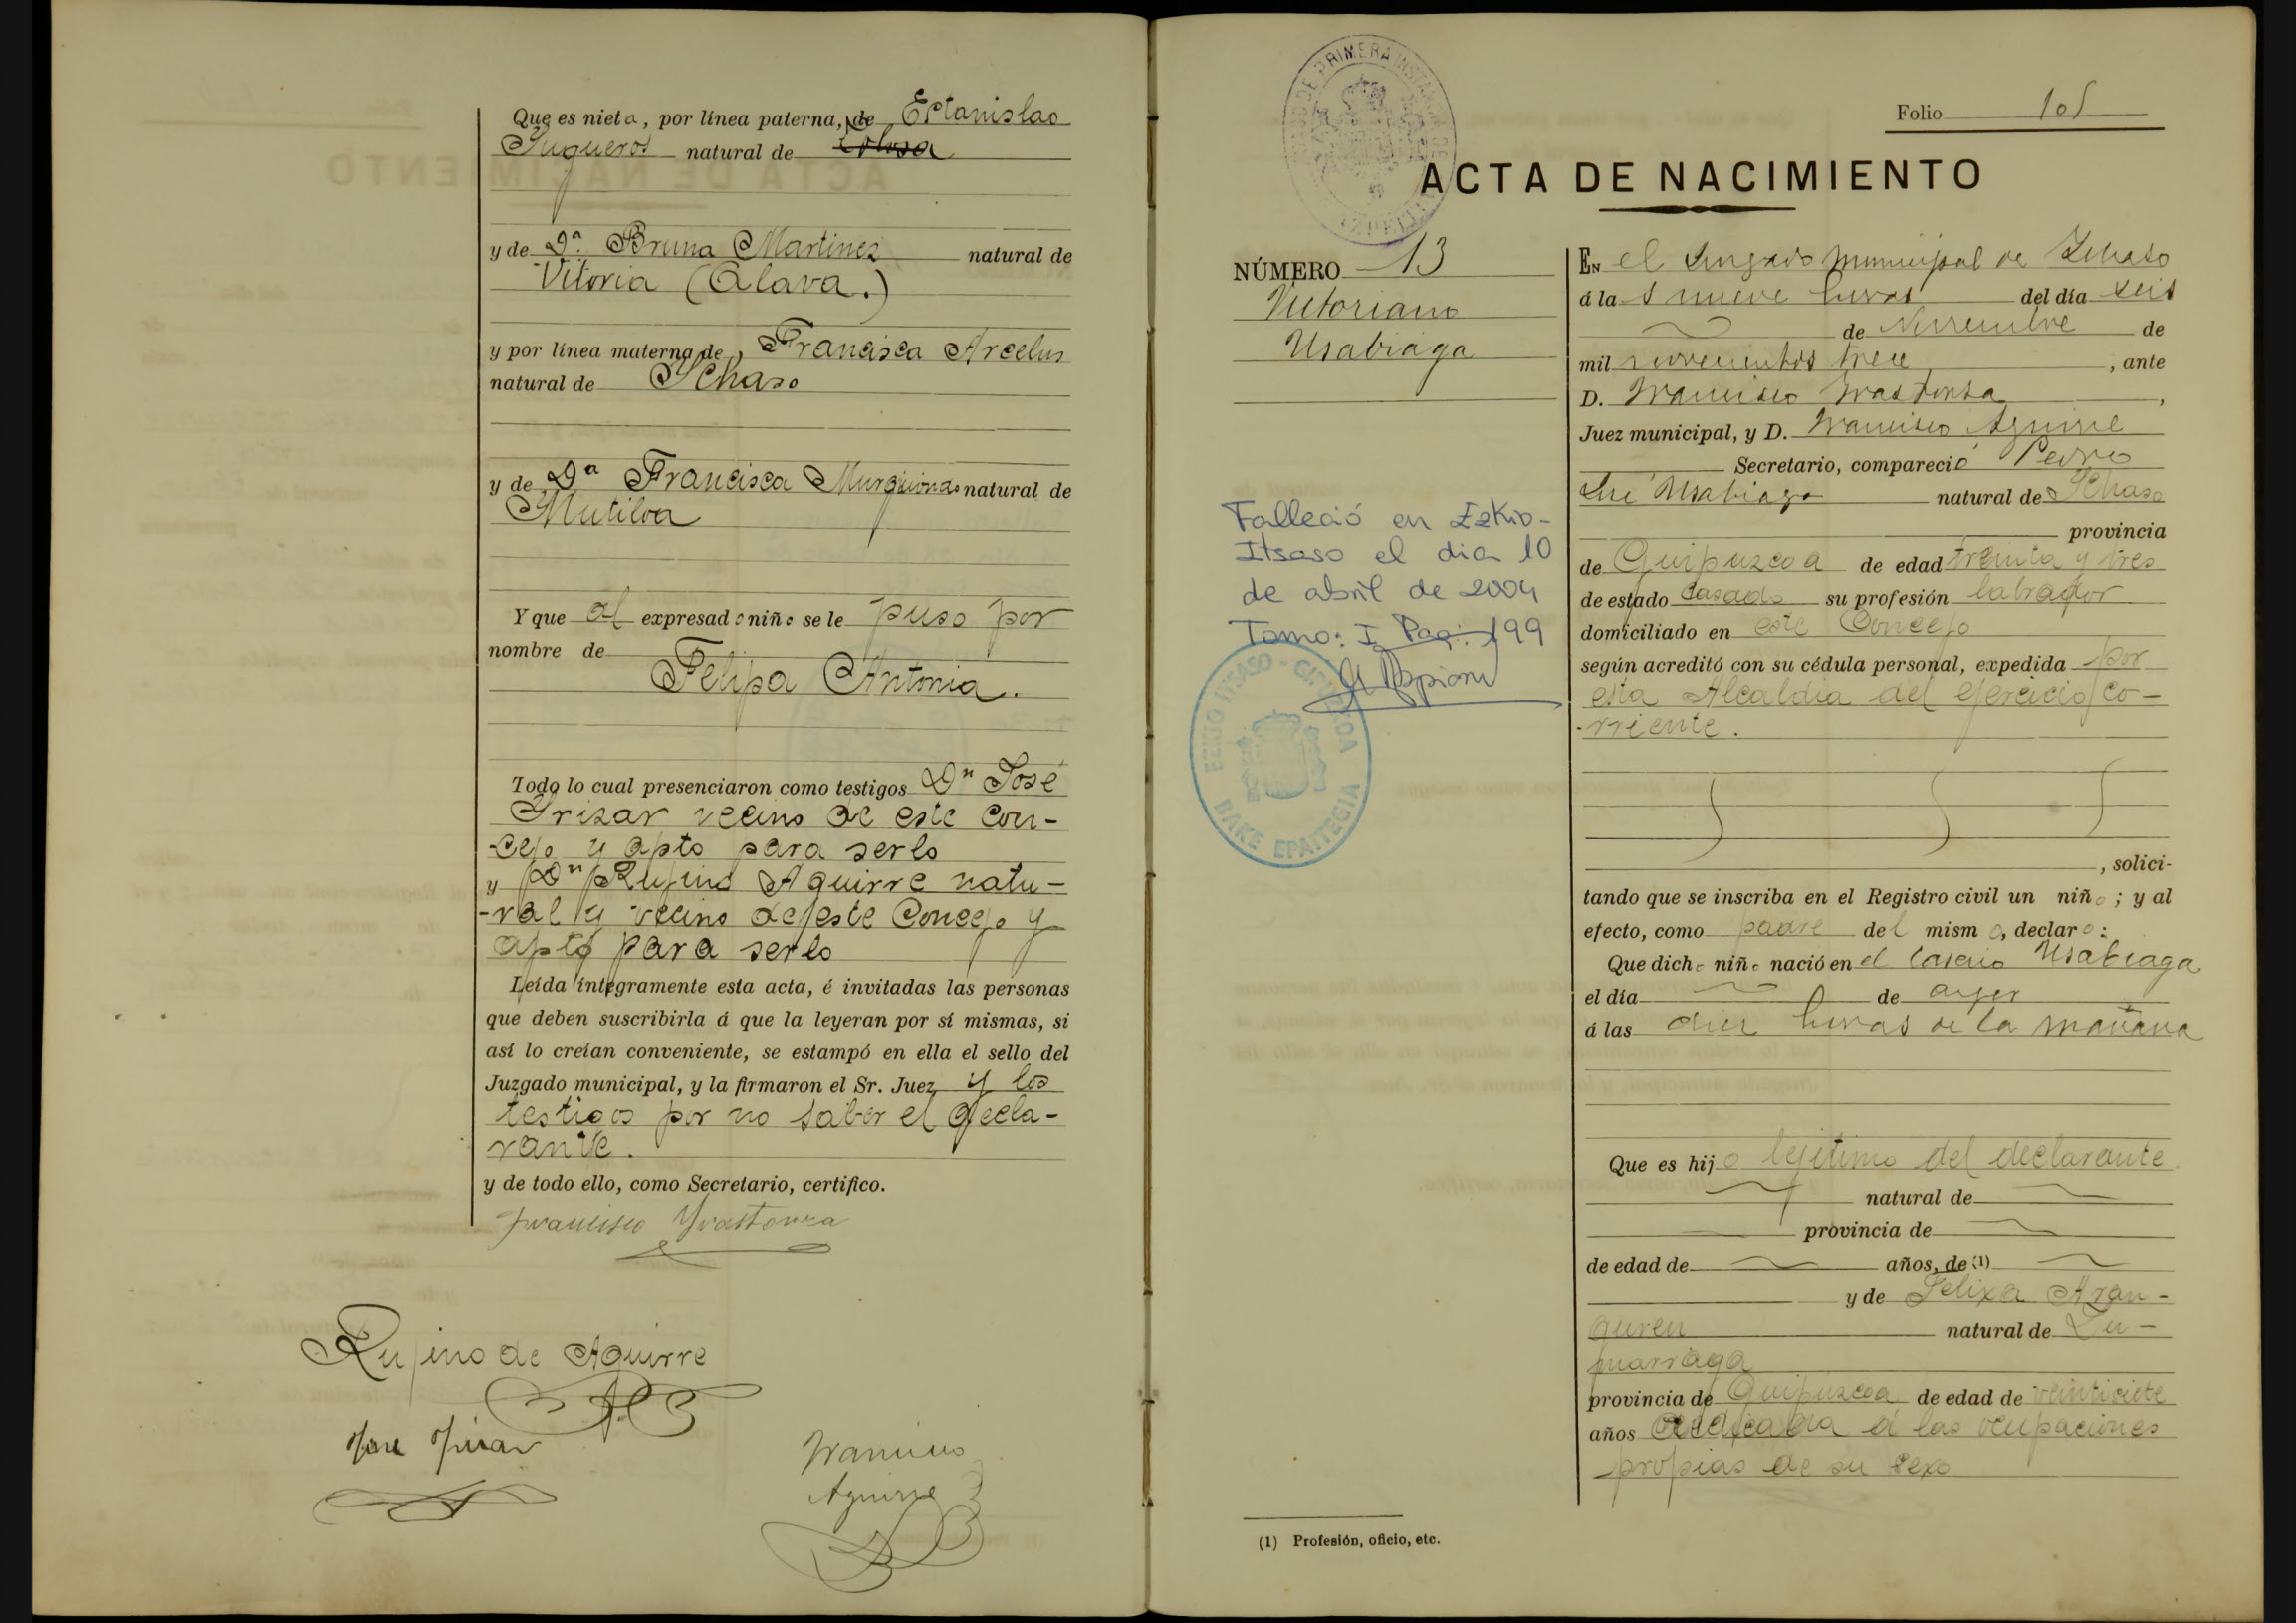 Que es nieta, por línea paterna, de Estanislao
Sugueros natural de
y de Dª Bruna Martinez natural de
Vitoria (Alava.)
y por línea materna de, Francisca Arcelus
natural de Ichaso
y de Dª Francisca Murguiondo natural de
Mutiloa
Y que al expresado niño se le puso por
nombre de
Felipa Antonia.
Todo lo cual presenciaron como testigos Dn José
Irizar vecino de este Con-
-cejo y apto para serlo
y Dn Rufino Aguirre natu-
-ral y vecino de este Concejo y
apto para serlo
Leída íntegramente esta acta, é invitadas las personas
que deben suscribirla á que la leyeran por sí mismas, si
así lo creían conveniente, se estampó en ella el sello del
Juzgado municipal, y la firmaron el Sr. Juez y los
testigos por no saber el decla-
rante.
y de todo ello, como Secretario, certifico.
Francisco Yrastorza
Rufino de Aguirre
José Irizar
Francisco
Aguirre
Folio 101
ACTA DE NACIMIENTO
NÚMERO 13
Victoriano
Usabiaga
Falleció en Ezkio-
Itsaso el dia 10
de abril de 2004
Tomo: I Pag: 199
EZKIO ITSASO - GIPUZKOA
BAKE EPAITEGIA
En el Juzgado municipal de Ichaso
á las nueve horas del día seis
de Noviembre de
mil novecientos trece, ante
D. Francisco Yrastorza,
Juez municipal, y D. Francisco Aguirre
Secretario, compareció Pedro
José Usabiaga natural de Ichaso
provincia
de Guipuzcoa de edad treinta y tres
de estado casado su profesión labrador
domiciliado en este Concejo
según acreditó con su cédula personal, expedida por
esta Alcaldia del ejercicio co-
-rriente.
, solici-
tando que se inscriba en el Registro civil un niño; y al
efecto, como padre del mismo, declaro:
Que dicho niño nació en el Caserio Usabiaga
el día de ayer
á las diez horas de la mañana
Que es hijo lejitimo del declarante
natural de
provincia de
de edad de años, de (1)
y de Felixa Aran-
guren natural de Zu-
marraga
provincia de Guipuzcoa de edad de veintisiete
años dedicada á las ocupaciones
propias de su sexo
(1) Profesión, oficio, etc.